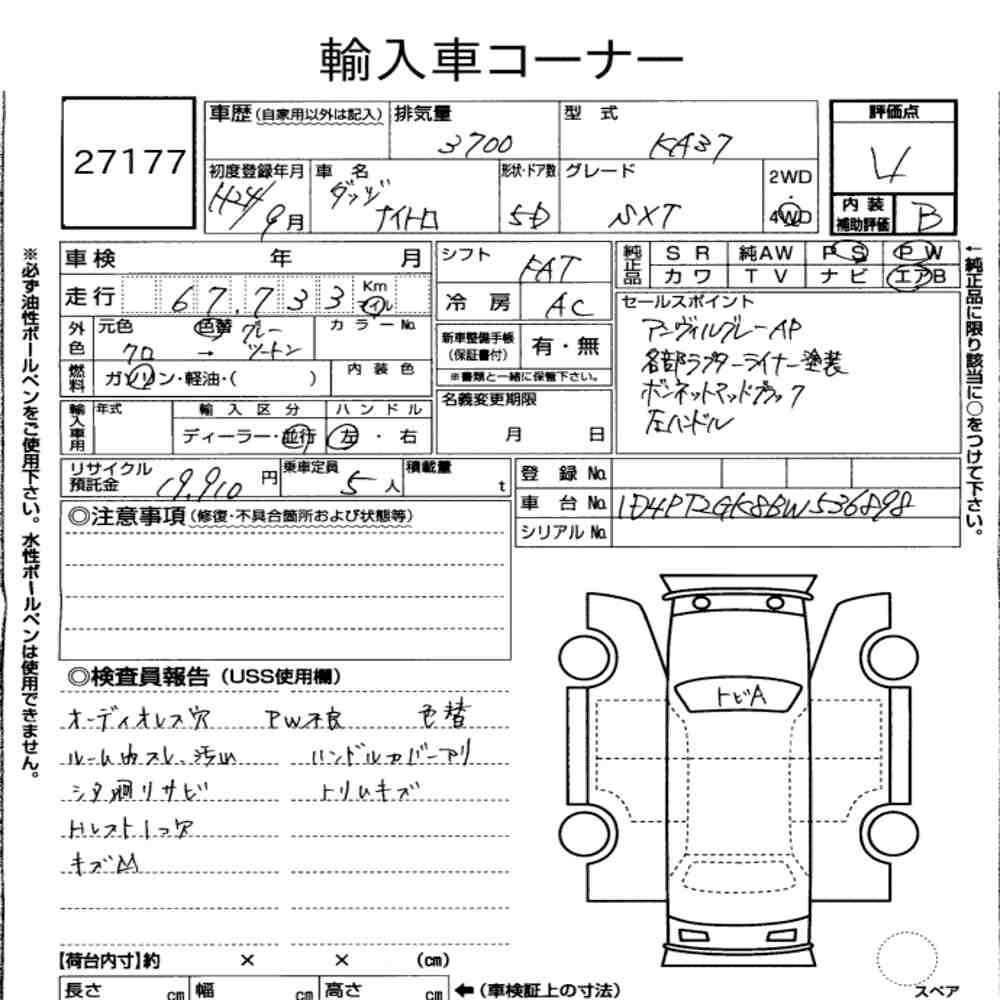 輸入車コーナー
27177
車歴 (自家用以外は記入)
排気量
3700
型 式
KA37
評価点
4
初度登録年月
H24/9月
車 名
ダッヂ
ナイトロ
形状・ドア数
5D
グレード
SXT
2WD
4WD
内装
補助評価
B
車検 年 月
走行 67,733 Km マイル
外色
元色
クロ
→
色替 グレー
ツートン
カラーNo.
燃料
ガソリン・軽油・( )
内装色
輸入車用
年式
輸入区分
ハンドル
ディーラー・並行
左・右
シフト
FAT
冷房
AC
新車整備手帳
(保証書付)
有・無
※書類と一緒に保管下さい。
名義変更期限
月 日
純正品
SR 純AW PS PW
カワ TV ナビ エアB
セールスポイント
アーヴィルグレーAP
各部ラプターライナー塗装
ボンネットマッドブラック
左ハンドル
リサイクル
預託金
19,910 円
乗車定員
5人
積載量
t
登録No.
車台No. 1D4PT2GK8BW536898
シリアルNo.
◎注意事項 (修復・不具合箇所および状態等)
◎検査員報告 (USS使用欄)
オーディオレス穴 PW不良 色替
ルーム内スレ、汚れ ハンドルカバーアリ
シタ廻リサビ トリムキズ
Hレスト1ヶ穴
キズ凹
トビA
【荷台内寸】約 × × (cm)
長さ cm 幅 cm 高さ cm ←(車検証上の寸法)
スペア
※必ず油性ボールペンをご使用下さい。水性ボールペンは使用できません。
←純正品に限り該当に○をつけて下さい。